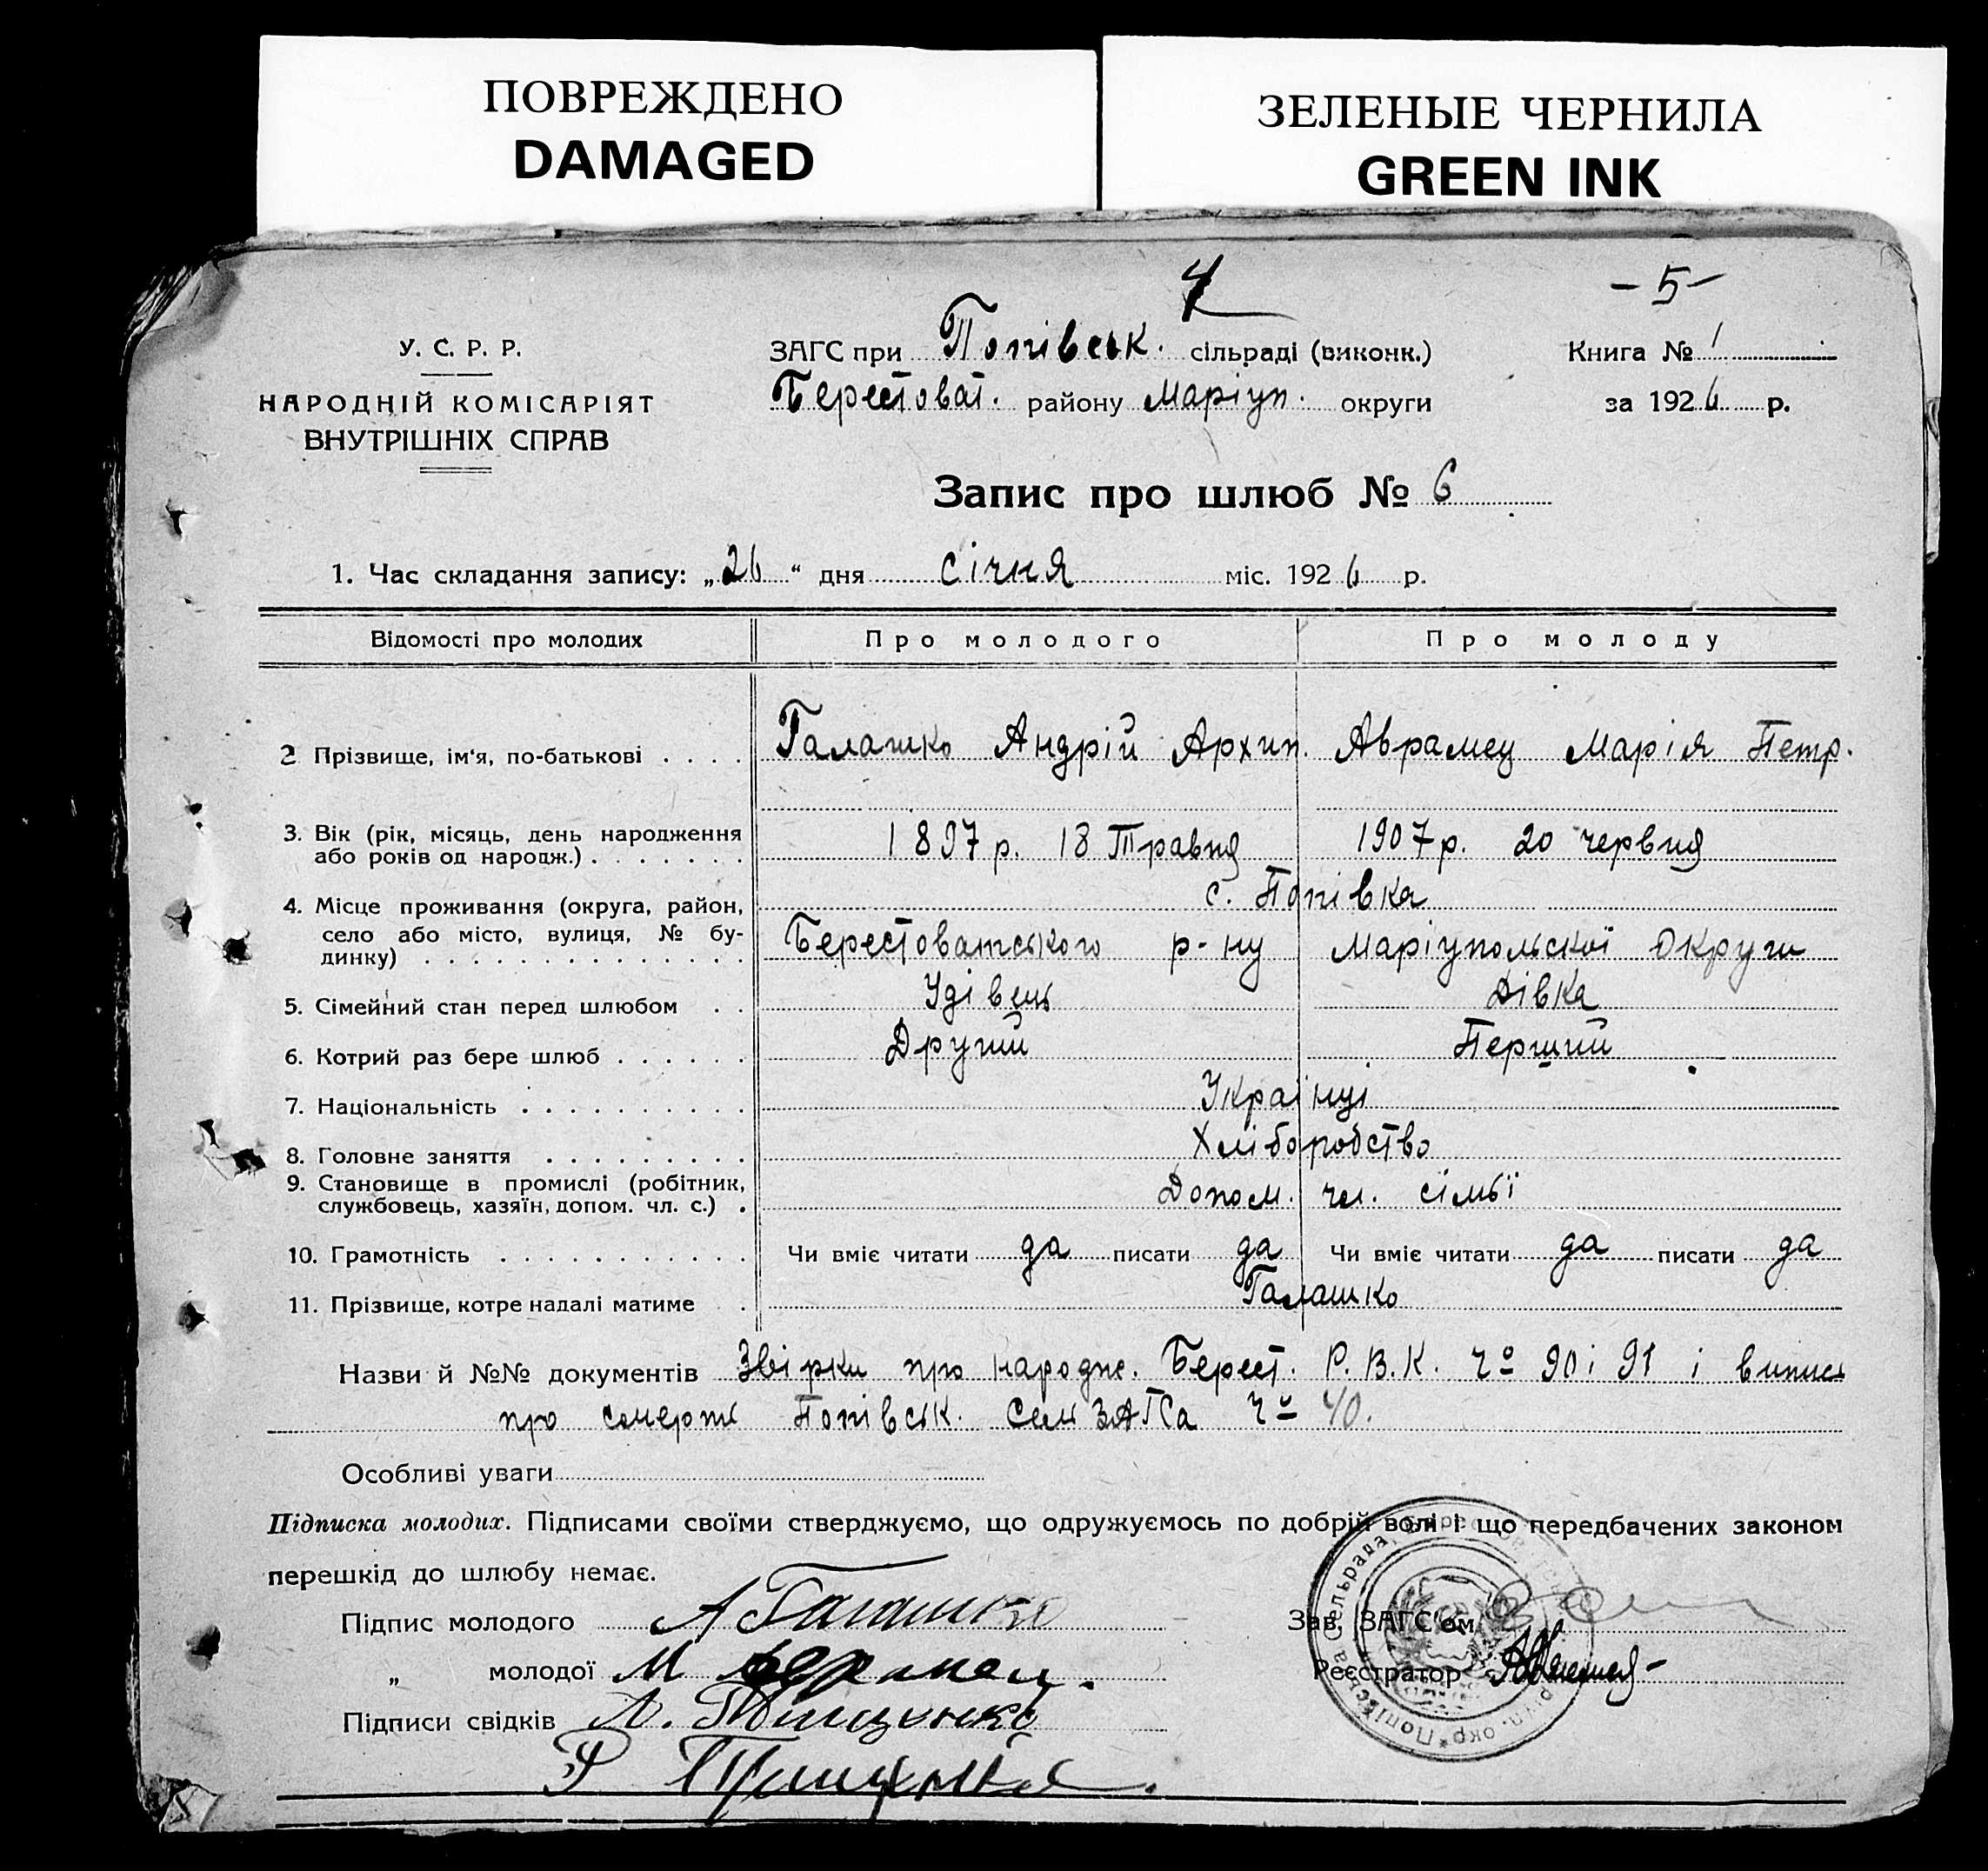 ПОВРЕЖДЕНО
DAMAGED
ЗЕЛЕНЫЕ ЧЕРНИЛА
GREEN INK
4
-5-
У. С. Р. Р.
НАРОДНІЙ КОМІСАРІЯТ
ВНУТРІШНІХ СПРАВ
ЗАГС при Попівськ. сільраді (виконк.)
Берестоват. району Маріуп. округи
Книга № 1
за 1926 р.
Запис про шлюб № 6
1. Час складання запису: „26“ дня січня міс. 1926 р.
Відомості про молодих Про молодого Про молоду
2 Прізвище, ім'я, по-батькові . . . . Галашко Андрій Архип. Аврамец Марія Петр.
3. Вік (рік, місяць, день народження
або років од народж.) . . . . . . . 1897 р. 18 Травня 1907 р. 20 червня
4. Місце проживання (округа, район, с. Попівка
село або місто, вулиця, № бу-
динку) . . . . . . . . . . . . . . Берестоватського р-ну Маріупольскої Округи
5. Сімейний стан перед шлюбом . . Удівець Дівка
6. Котрий раз бере шлюб . . . . . . Другий Перший
7. Національність . . . . . . . . . . Українці
8. Головне заняття . . . . . . . . . Хліборобство
9. Становище в промислі (робітник,
службовець, хазяїн, допом. чл. с.) . Допом. чл. сімьї
10. Грамотність . . . . . . . . . . . Чи вміє читати да писати да Чи вміє читати да писати да
11. Прізвище, котре надалі матиме . Галашко
Назви й №№ документів Звірки про народж. Берест. Р.В.К. Чо 90 і 91 і випись
про смерть Попівськ. Сель ЗАГСа Чо 40.
Особливі уваги
Підписка молодих. Підписами своїми стверджуємо, що одружуємось по добрій волі і що передбачених законом
перешкід до шлюбу немає.
Підпис молодого А Галашко
„ молодої М
Підписи свідків
Зав. ЗАГС'ом
Реєстратор